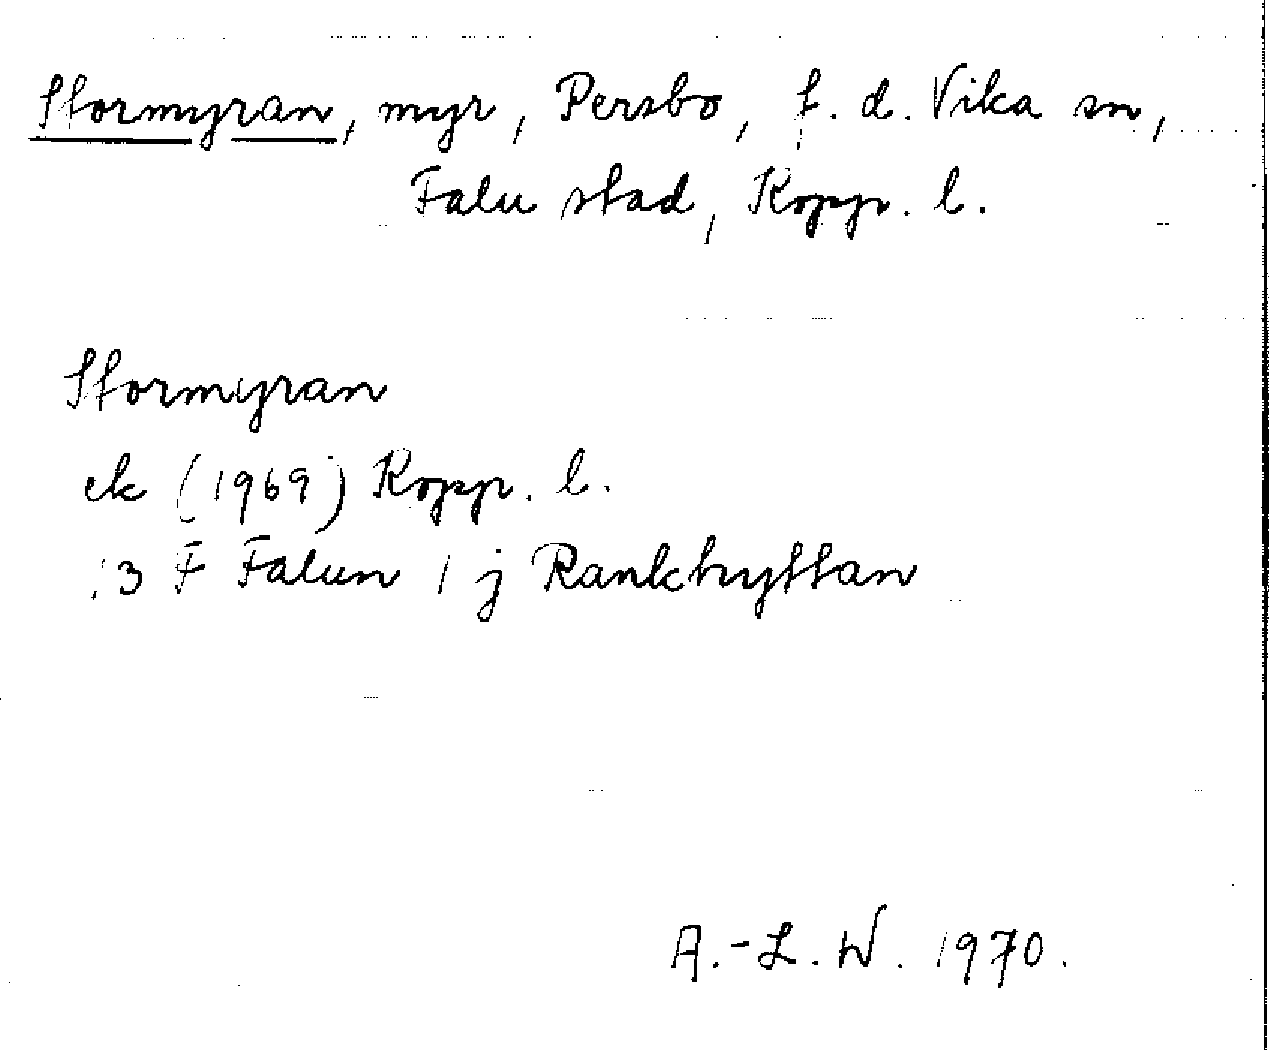 Stormyran, myr, Persbo, f. d. Vika sn,
Falu stad, Kopp. l.
Stormyran
ek (1969) Kopp. l.
13 F Falun 1 j Rankhyttan
A.-L. W. 1970.